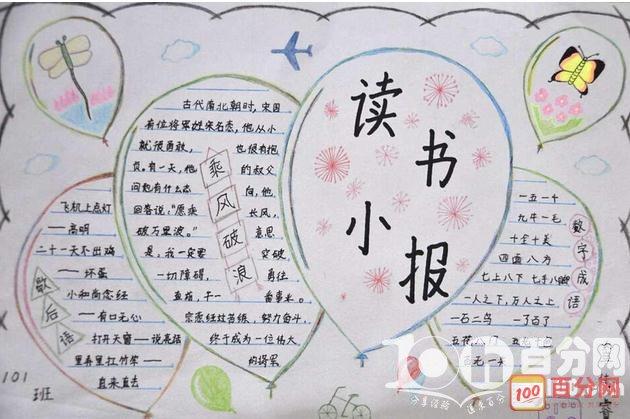 读书
小报
古代南北朝时,宋国
有位将军姓宗名悫,他从小
就很勇敢, 也很有抱
负,有一天,他 的叔父
问他有什么志 向,他
回答说:“愿乘 长风,
破万里浪。” 意思
是,我一定要 突破
一切障碍, 勇往
直前,干一 番事业。
宗悫经过苦练,努力奋斗,
终于成为一位伟大
的将军
乘风破浪
飞机上点灯
——高明
二十一天不出鸡
——坏蛋
小和尚念经
——有口无心
打开天窗——说亮话
里弄里扛竹竿——
直来直去
歇后语
一五一十
九牛一毛
十全十美
四面八方
七上八下 七手八脚
一人之下,万人之上
一石二鸟 一了百了
数字成语
101
班
百分网
分享经验
100
百分网